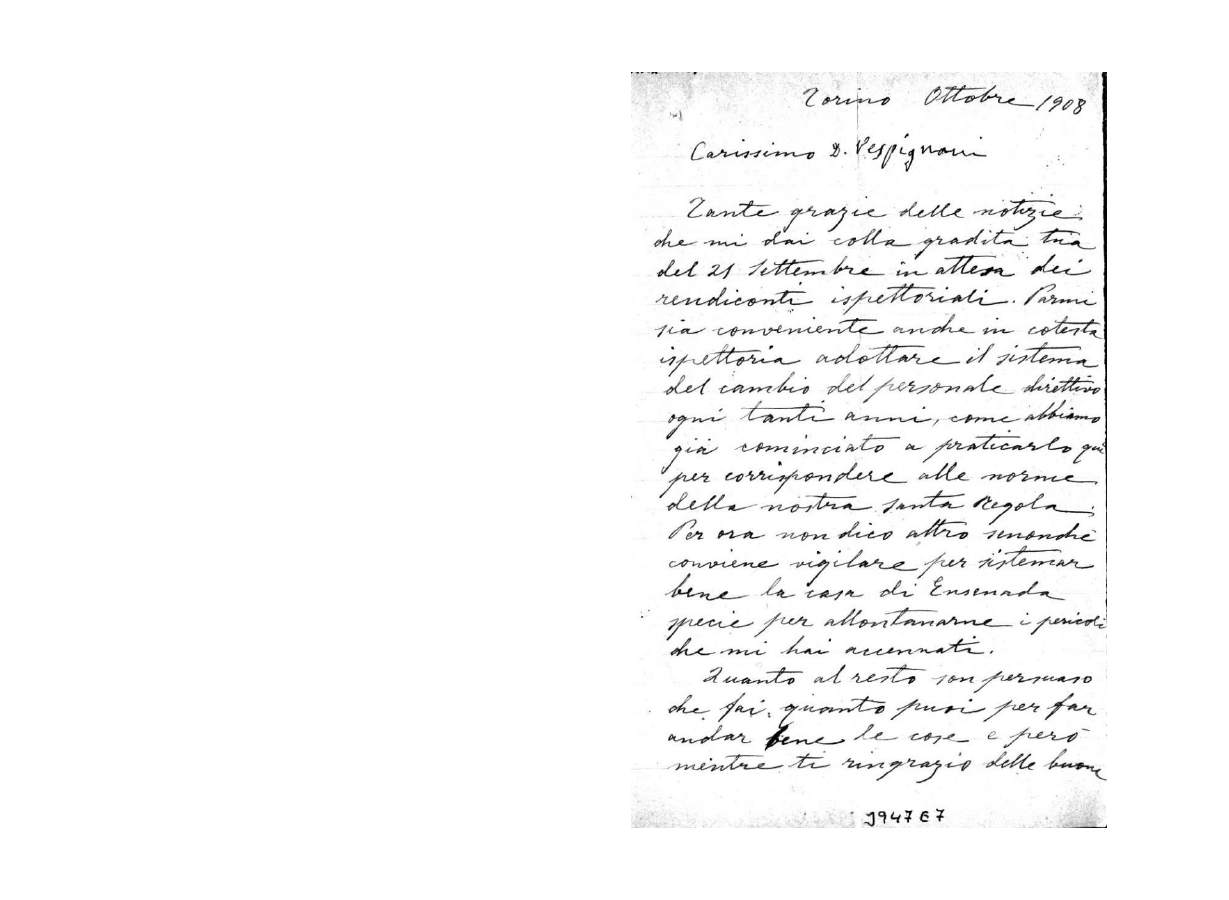 Torino Ottobre 1908
Carissimo D. Vespignani
Tante grazie delle notizie
che mi dai colla gradita tua
del 21 Settembre in attesa dei
rendiconti ispettoriali. Parmi
sia conveniente anche in cotesta
ispettoria adottare il sistema
del cambio del personale direttivo
ogni tanti anni, come abbiamo
già cominciato a praticarlo qui
per corrispondere alle norme
della nostra santa Regola.
Per ora non dico altro senonchè
conviene vigilare per sistemar
bene la casa di Ensenada
specie per allontanarne i pericoli
che mi hai accennati.
Quanto al resto son persuaso
che fai quanto puoi per far
andar bene le cose e però
mentre ti ringrazio delle buone
1947 E 7